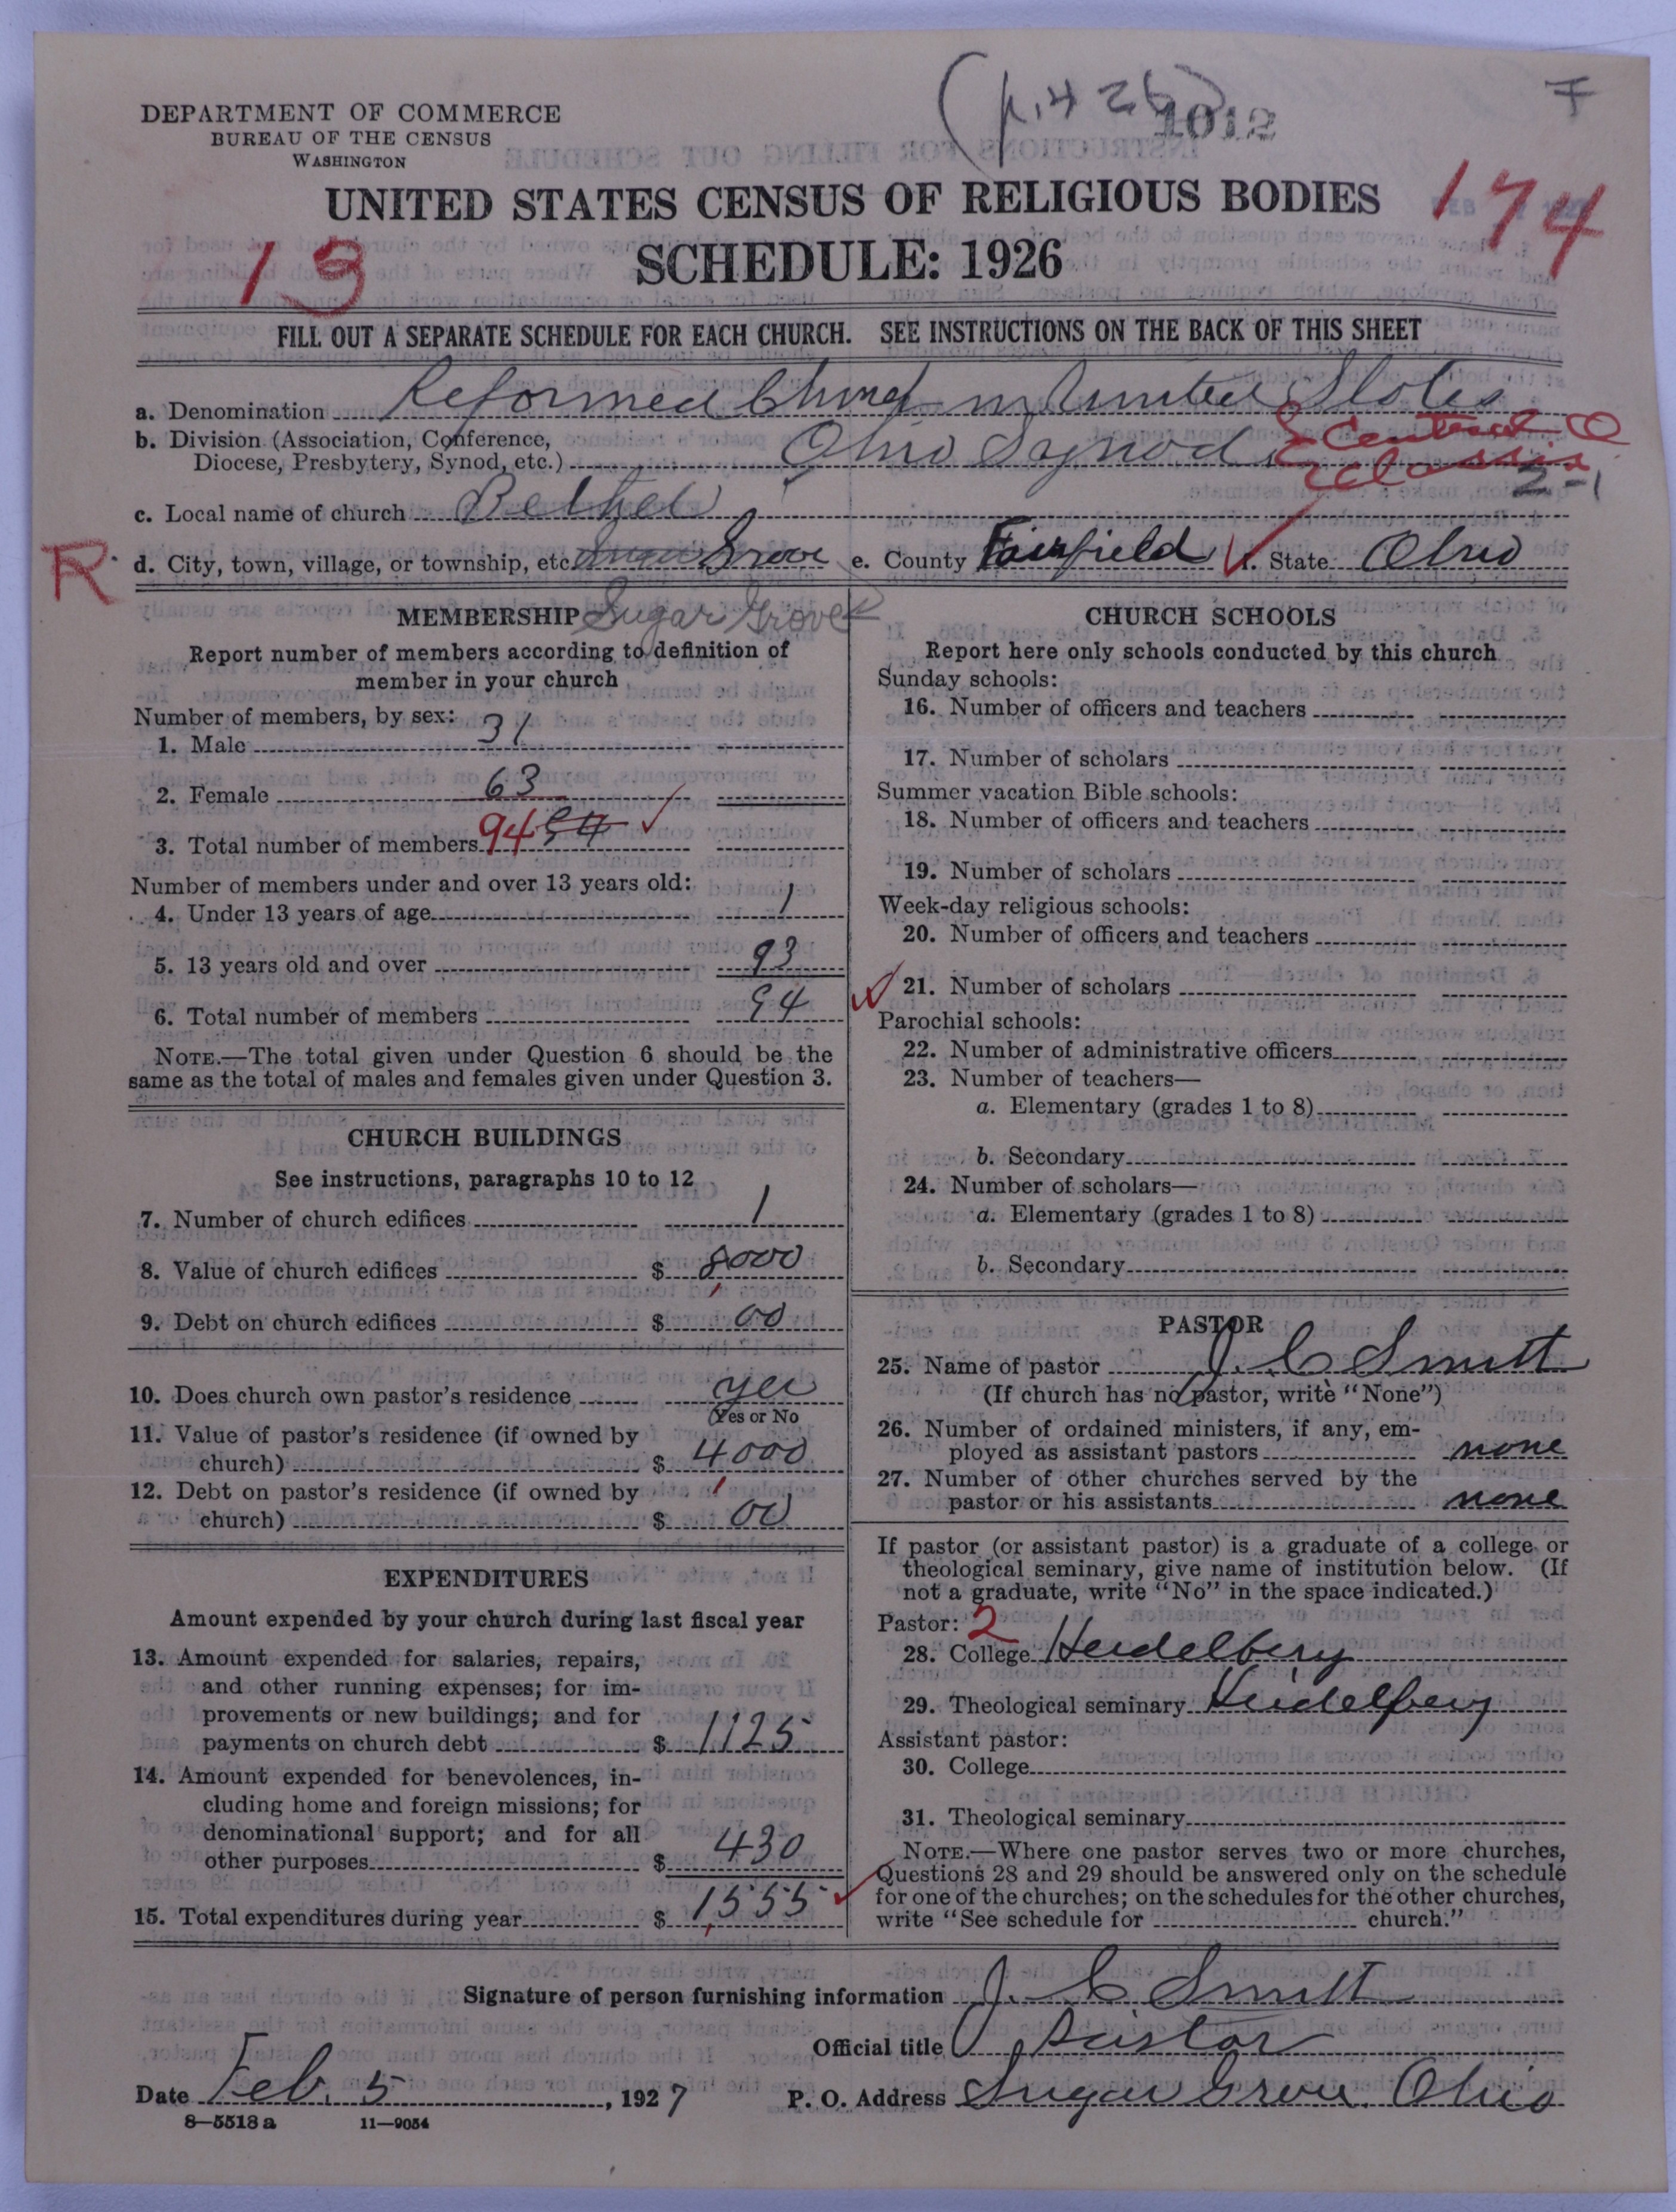 (p. 426)
1012
F
DEPARTMENT OF COMMERCE
BUREAU OF THE CENSUS
WASHINGTON
UNITED STATES CENSUS OF RELIGIOUS BODIES
174
13
SCHEDULE: 1926
FILL OUT A SEPARATE SCHEDULE FOR EACH CHURCH. SEE INSTRUCTIONS ON THE BACK OF THIS SHEET
a. Denomination Reformed Church in United States
b. Division (Association, Conference, Diocese, Presbytery, Synod, etc.) Ohio Synod
Central O
Classis
2-1
c. Local name of church Bethel
R
d. City, town, village, or township, etc. Sugar Grove e. County Fairfield f. State Ohio
MEMBERSHIP Sugar Grove
Report number of members according to definition of
member in your church
Number of members, by sex:
1. Male 31
2. Female 63
3. Total number of members 94 94
Number of members under and over 13 years old:
4. Under 13 years of age 1
5. 13 years old and over 93
6. Total number of members 94
NOTE.—The total given under Question 6 should be the
same as the total of males and females given under Question 3.
CHURCH BUILDINGS
See instructions, paragraphs 10 to 12
7. Number of church edifices 1
8. Value of church edifices $ 8000
9. Debt on church edifices $ 00
10. Does church own pastor's residence yes
(Yes or No
11. Value of pastor's residence (if owned by
church) $ 4000
12. Debt on pastor's residence (if owned by
church) $ 00
EXPENDITURES
Amount expended by your church during last fiscal year
13. Amount expended for salaries, repairs,
and other running expenses; for im-
provements or new buildings; and for
payments on church debt $ 1125
14. Amount expended for benevolences, in-
cluding home and foreign missions; for
denominational support; and for all
other purposes $ 430
15. Total expenditures during year $ 1555
CHURCH SCHOOLS
Report here only schools conducted by this church
Sunday schools:
16. Number of officers and teachers
17. Number of scholars
Summer vacation Bible schools:
18. Number of officers and teachers
19. Number of scholars
Week-day religious schools:
20. Number of officers and teachers
21. Number of scholars
Parochial schools:
22. Number of administrative officers
23. Number of teachers—
a. Elementary (grades 1 to 8)
b. Secondary
24. Number of scholars—
a. Elementary (grades 1 to 8)
b. Secondary
PASTOR
25. Name of pastor J. C. Smith
(If church has no pastor, write "None")
26. Number of ordained ministers, if any, em-
ployed as assistant pastors none
27. Number of other churches served by the
pastor or his assistants none
If pastor (or assistant pastor) is a graduate of a college or
theological seminary, give name of institution below. (If
not a graduate, write "No" in the space indicated.)
Pastor: 2
28. College Heidelberg
29. Theological seminary Heidelberg
Assistant pastor:
30. College
31. Theological seminary
NOTE.—Where one pastor serves two or more churches,
Questions 28 and 29 should be answered only on the schedule
for one of the churches; on the schedules for the other churches,
write "See schedule for church."
Signature of person furnishing information J. C. Smith
Official title Pastor
Date Feb. 5, 1927 P. O. Address Sugar Grove Ohio
8—5518 a 11—9054